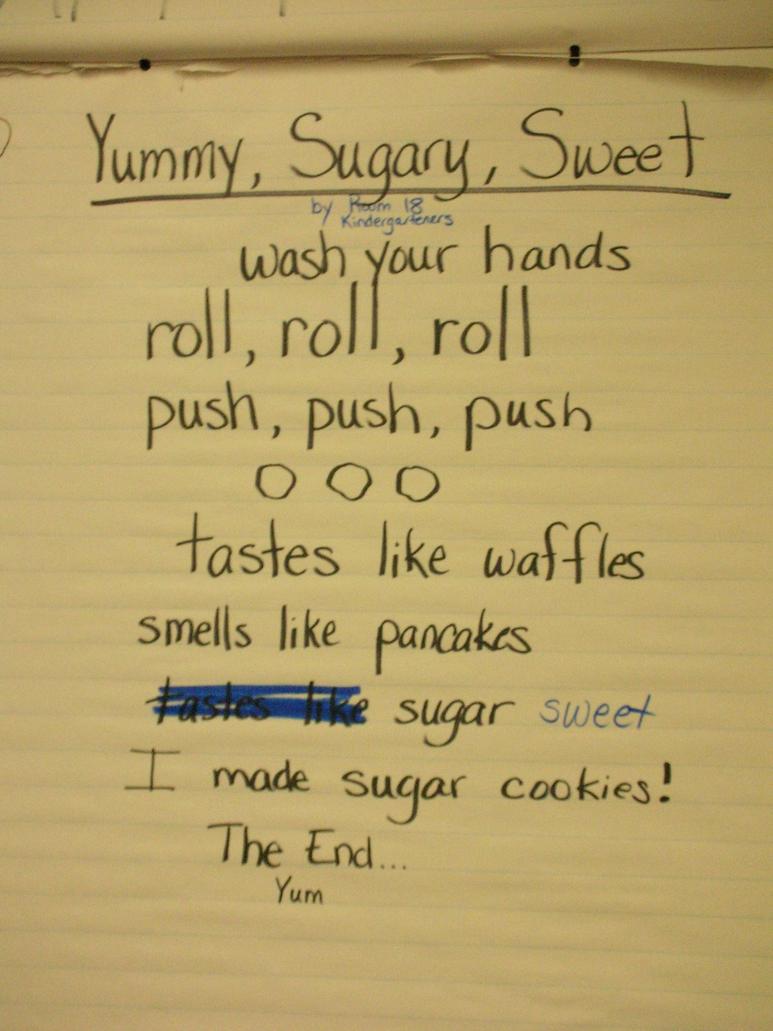 Yummy, Sugary, Sweet
by Room 18
Kindergarteners
wash your hands
roll, roll, roll
push, push, push
O O O
tastes like waffles
smells like pancakes
tastes like sugar sweet
I made sugar cookies!
The End...
Yum